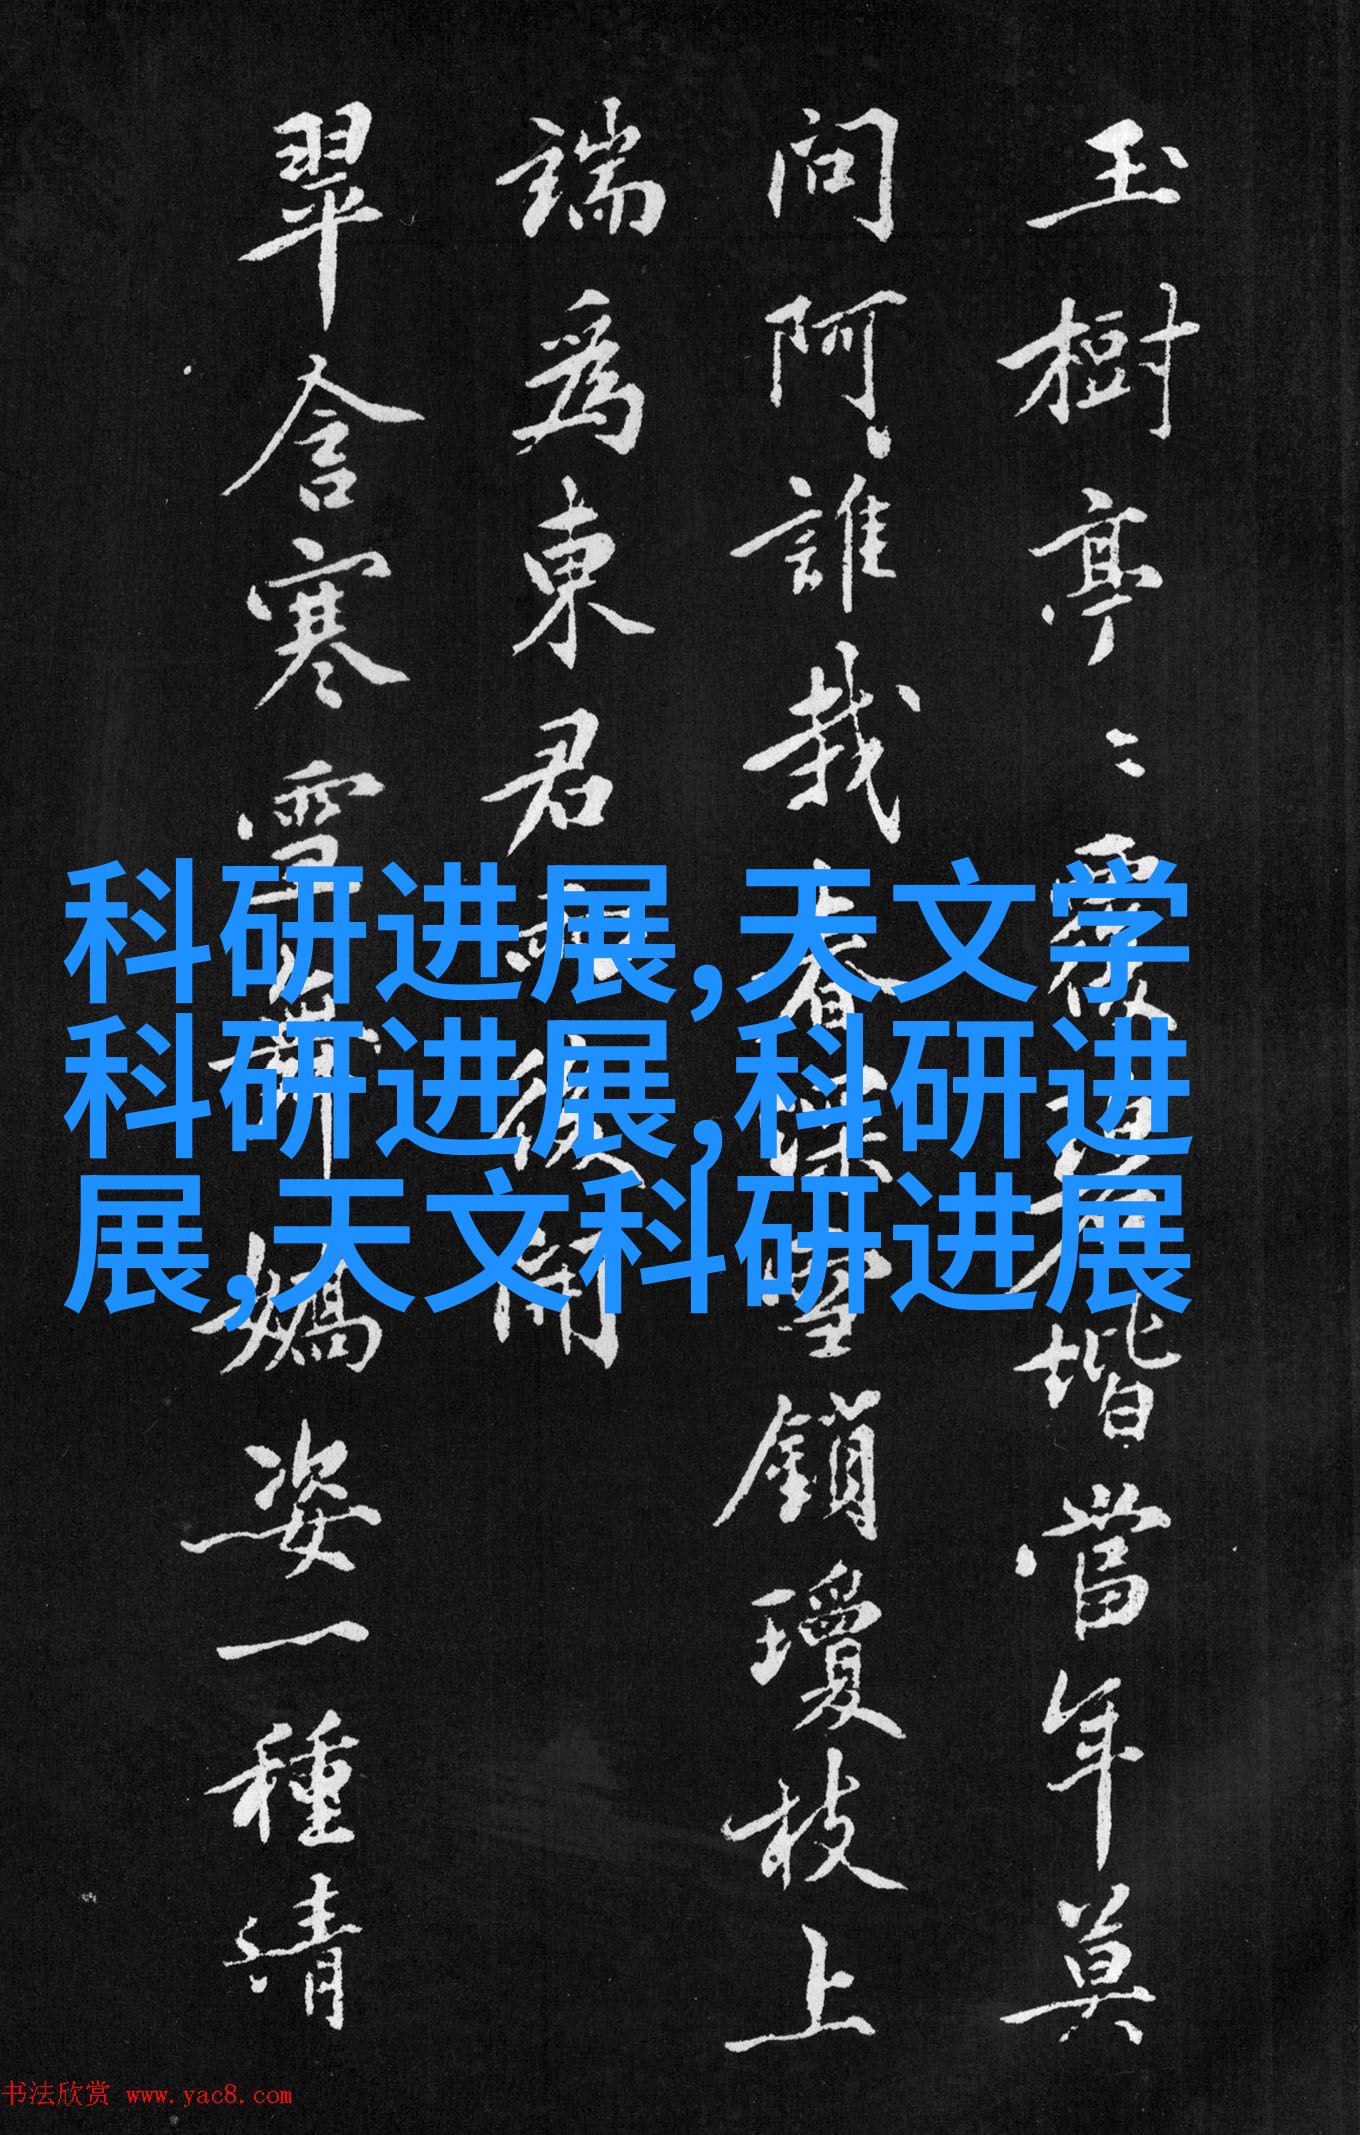 玉樹亭〻堦當年莫
問阿誰栽春深雪鎖瓊枝上
端爲東君後開
翠含寒雪嬌姿一種清
科研进展,天文学
科研进展,科研进
展,天文科研进展
书法欣赏 www.yac8.com